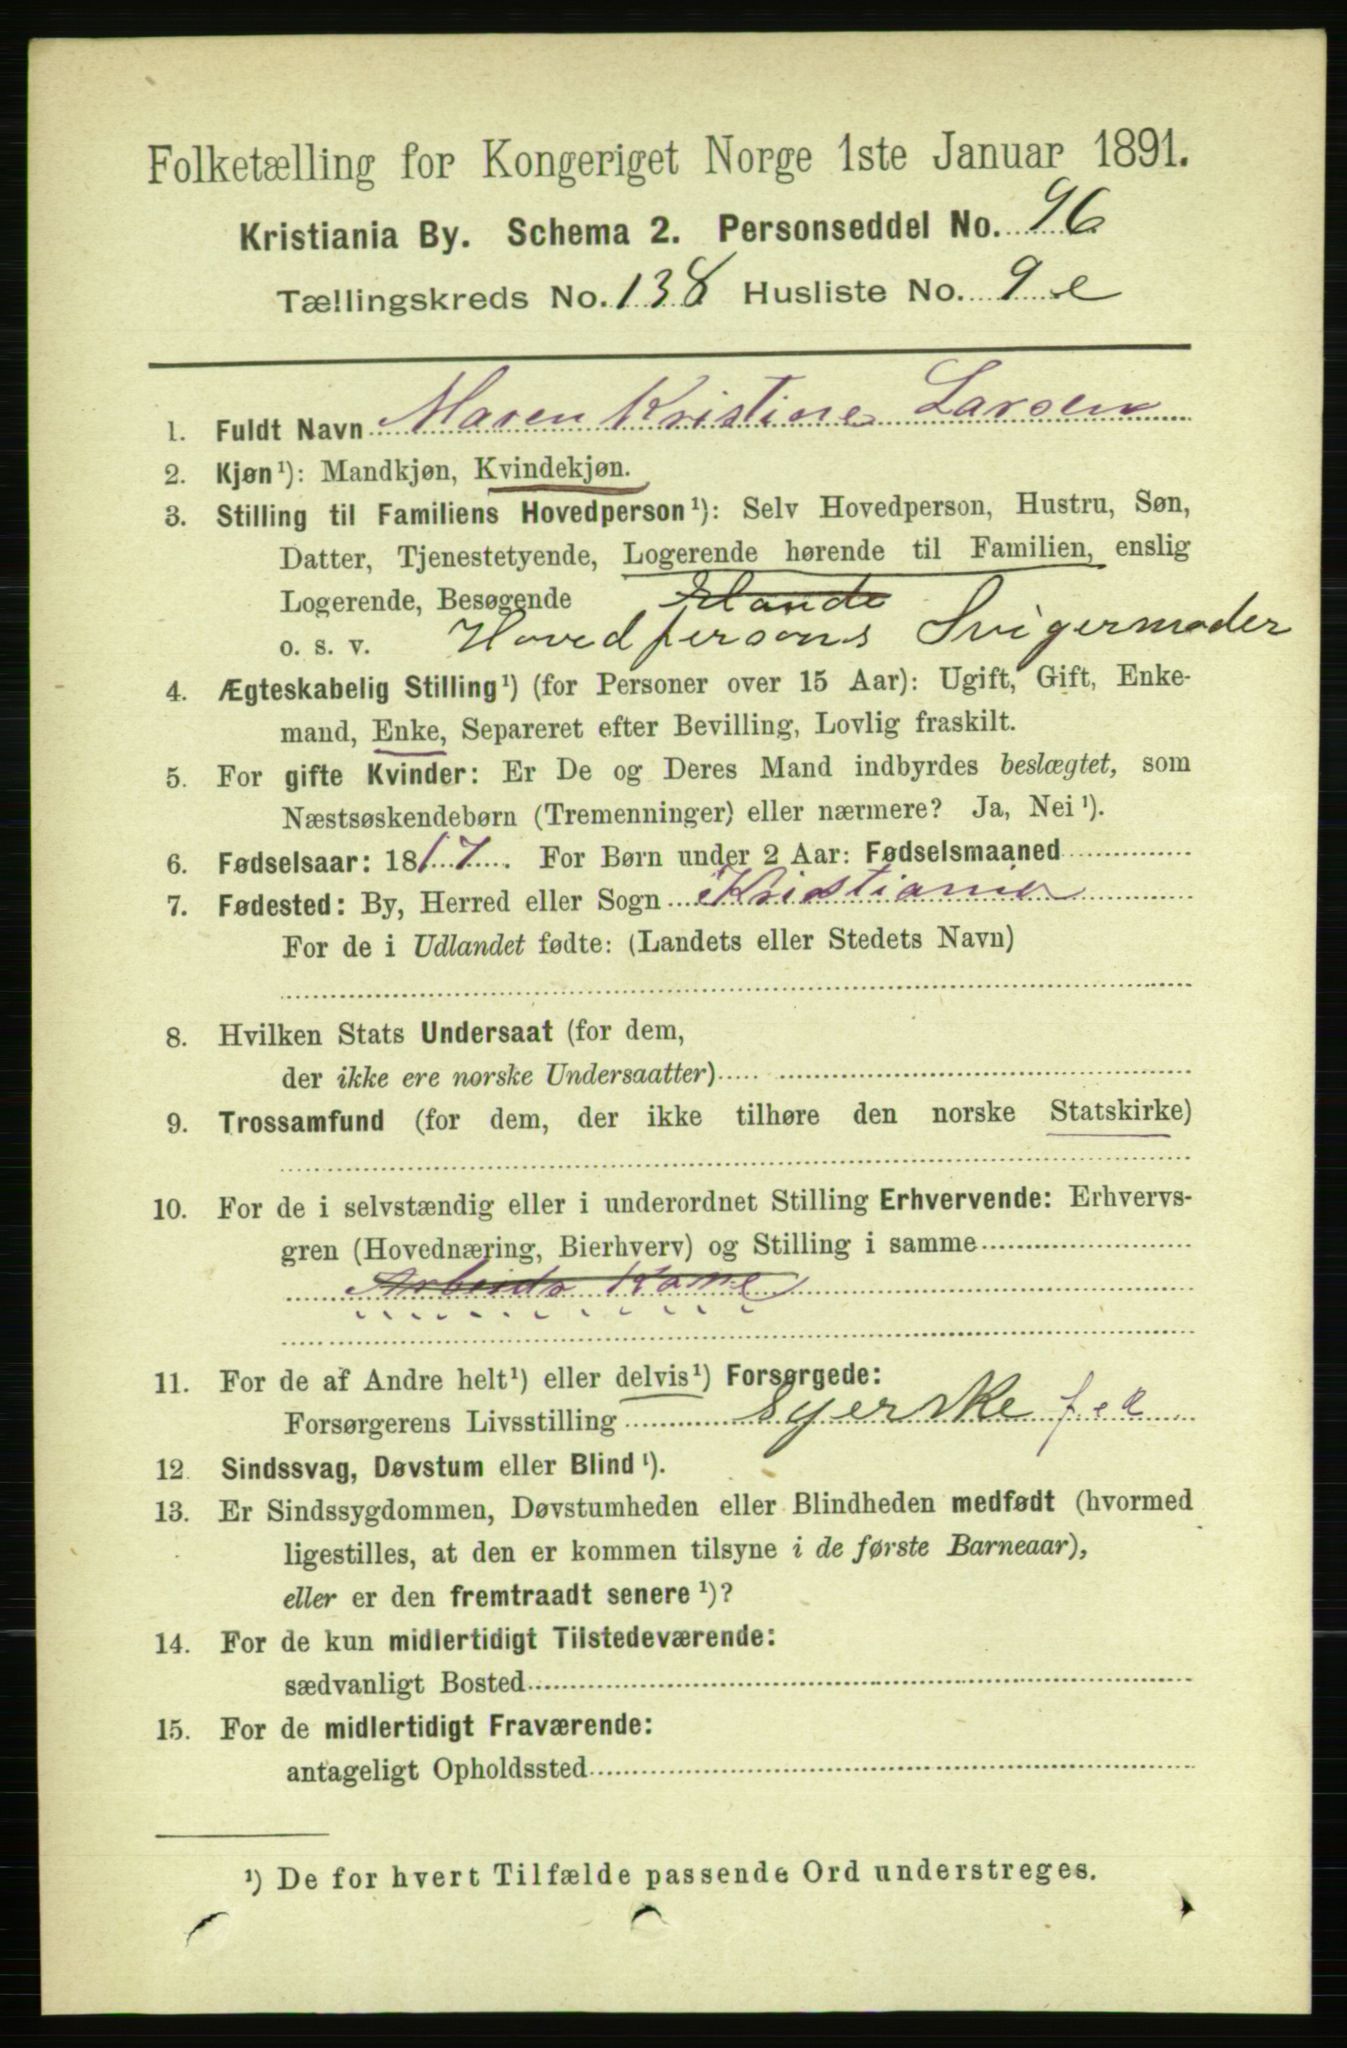 Folketælling for Kongeriget Norge 1ste Januar 1891.
Kristiania By. Schema 2. Personseddel No. 96
Tællingskreds No. 138 Husliste No. 9 e
1. Fuldt Navn Maren Kristine Larsen
2. Kjøn¹): Mandkjøn, Kvindekjøn.
3. Stilling til Familiens Hovedperson¹): Selv Hovedperson, Hustru, Søn,
Datter, Tjenestetyende, Logerende hørende til Familien, enslig
Logerende, Besøgende
o. s. v. Hovedpersons Svigermoder
4. Ægteskabelig Stilling¹) (for Personer over 15 Aar): Ugift, Gift, Enke-
mand, Enke, Separeret efter Bevilling, Lovlig fraskilt.
5. For gifte Kvinder: Er De og Deres Mand indbyrdes beslægtet, som
Næstsøskendebørn (Tremenninger) eller nærmere? Ja, Nei¹).
6. Fødselsaar: 1817. For Børn under 2 Aar: Fødselsmaaned
7. Fødested: By, Herred eller Sogn Kristiania
For de i Udlandet fødte: (Landets eller Stedets Navn)
8. Hvilken Stats Undersaat (for dem,
der ikke ere norske Undersaatter)
9. Trossamfund (for dem, der ikke tilhøre den norske Statskirke)
10. For de i selvstændig eller i underordnet Stilling Erhvervende: Erhvervs-
gren (Hovednæring, Bierhverv) og Stilling i samme
Arbeids Kone
11. For de af Andre helt¹) eller delvis¹) Forsørgede:
Forsørgerens Livsstilling Syerske
12. Sindssvag, Døvstum eller Blind¹).
13. Er Sindssygdommen, Døvstumheden eller Blindheden medfødt (hvormed
ligestilles, at den er kommen tilsyne i de første Barneaar),
eller er den fremtraadt senere¹)?
14. For de kun midlertidigt Tilstedeværende:
sædvanligt Bosted
15. For de midlertidigt Fraværende:
antageligt Opholdssted
¹) De for hvert Tilfælde passende Ord understreges.